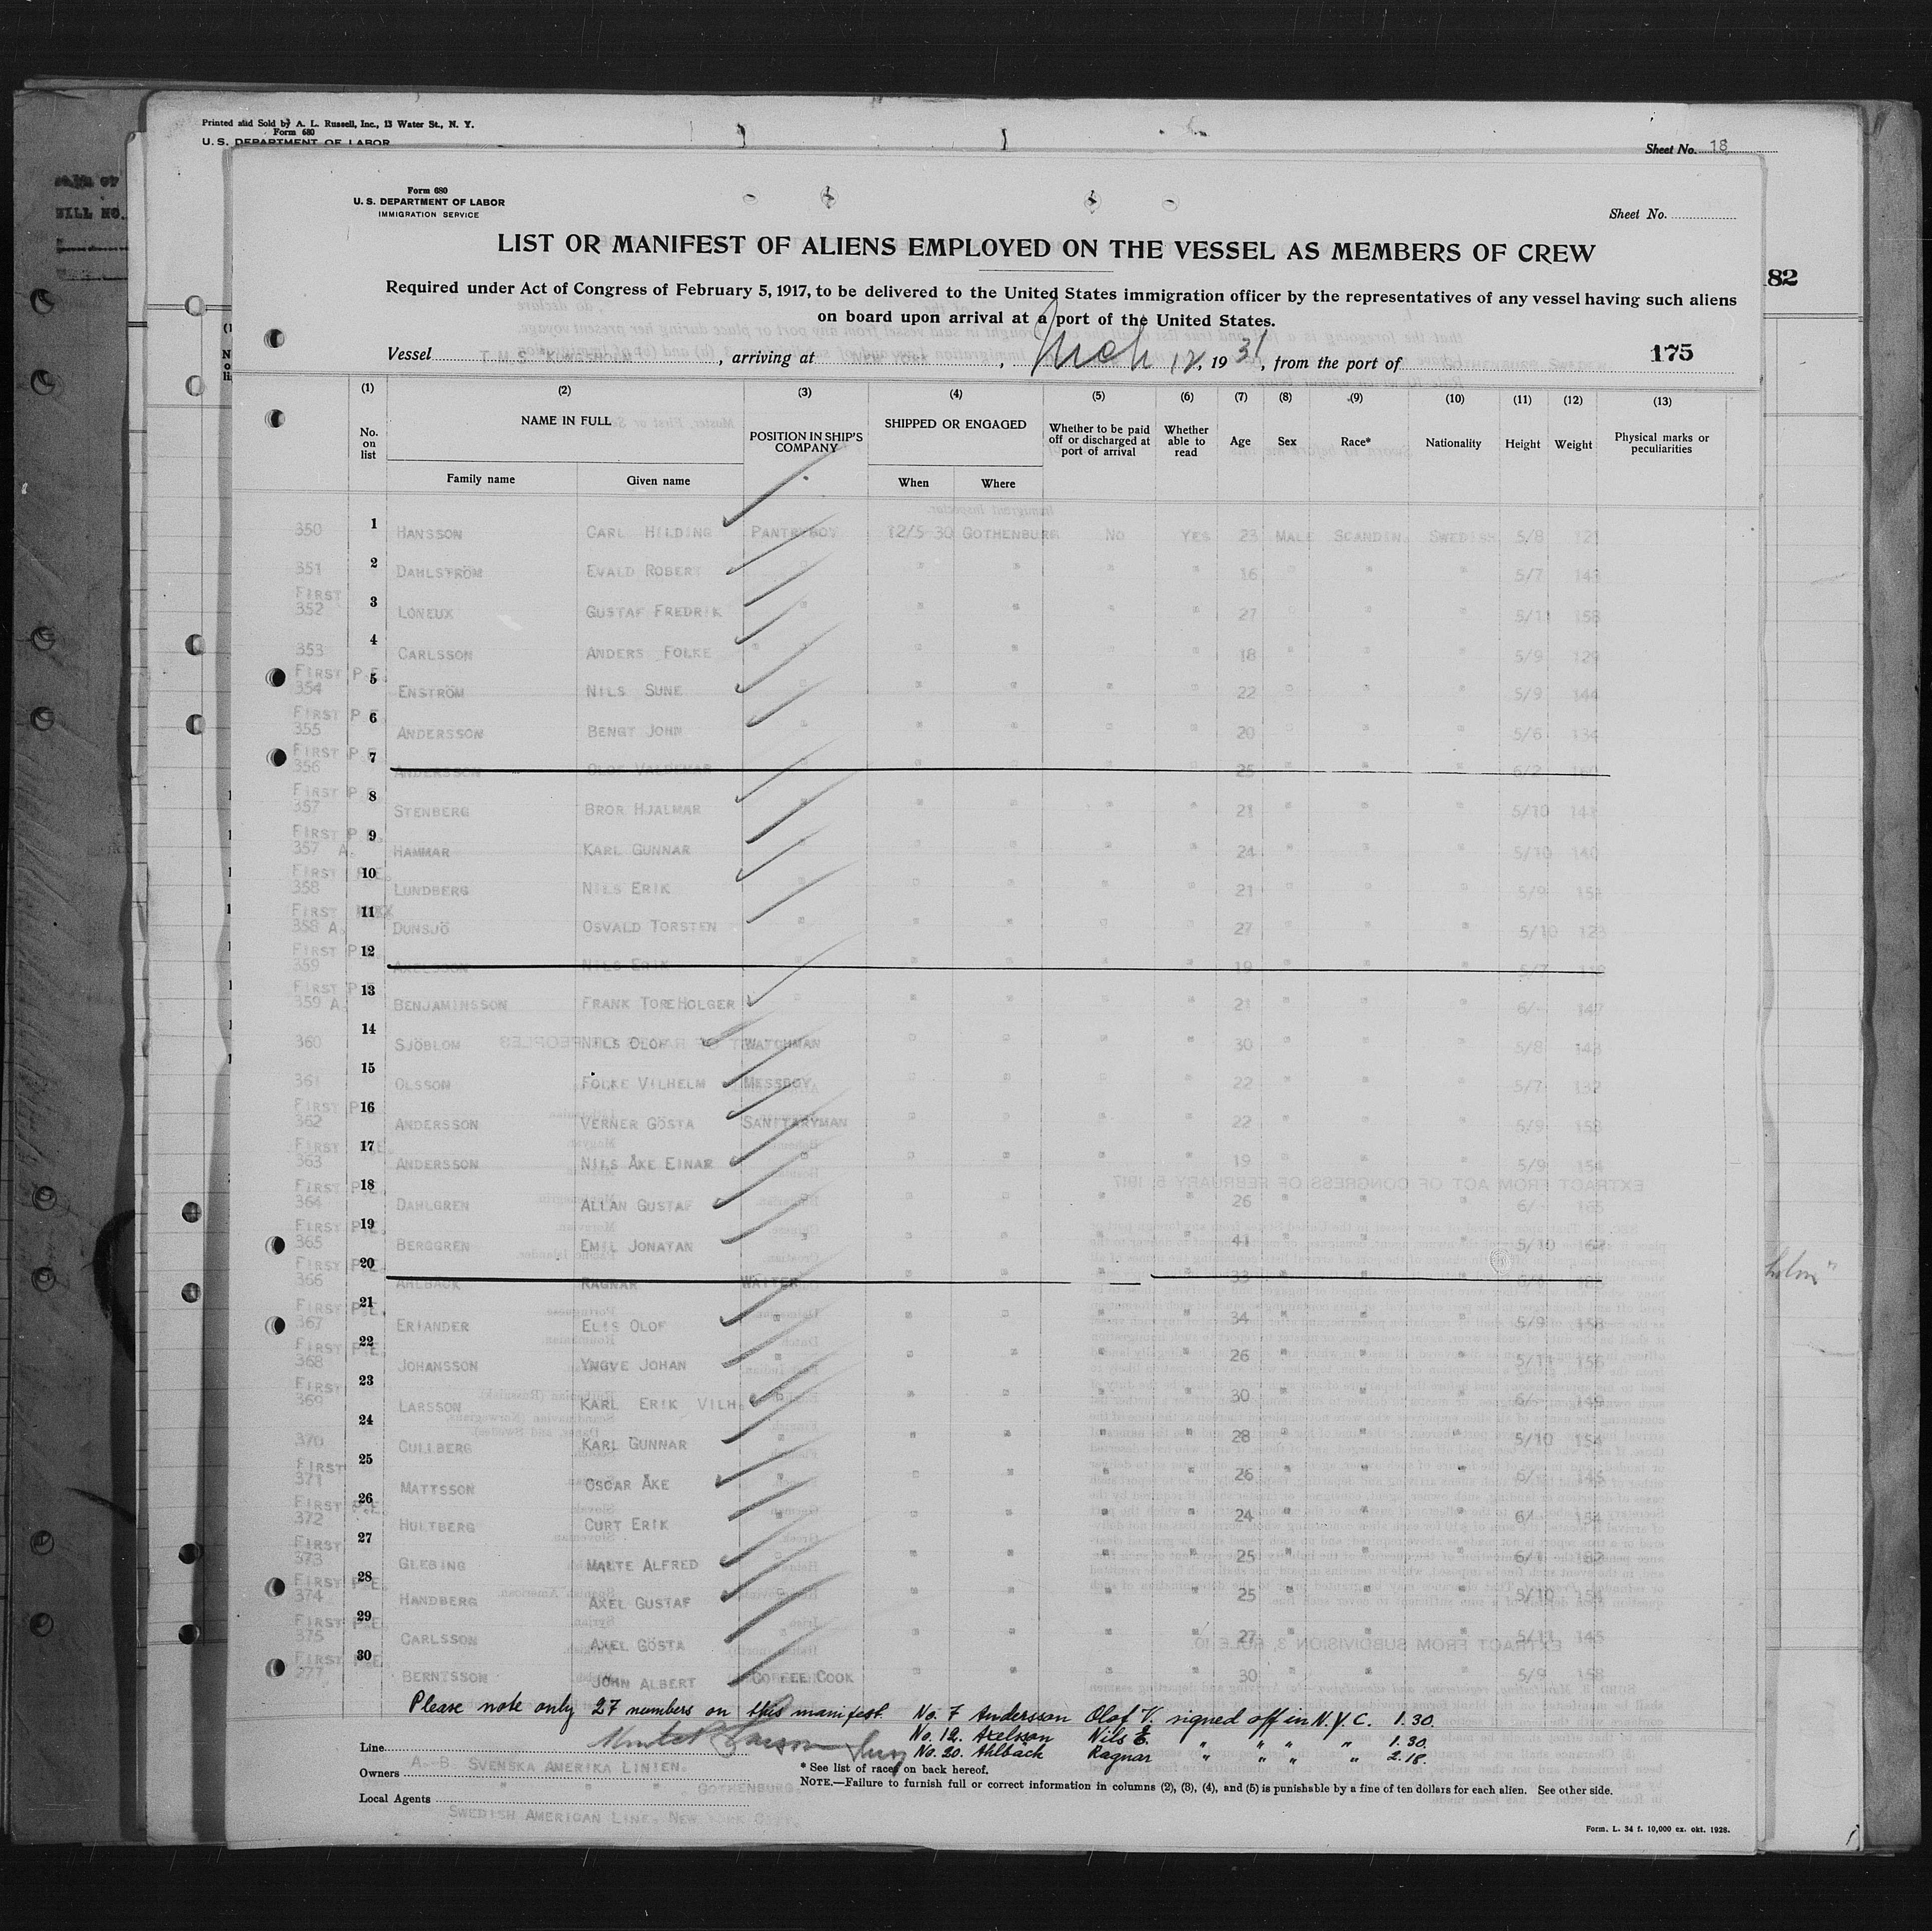 Printed and Sold by A. L. Russell, Inc., 13 Water St., N. Y.
Form 680
U. S. DEPARTMENT OF LABOR
Sheet No. 18
BILL NO.
82
Form 680
U. S. DEPARTMENT OF LABOR
IMMIGRATION SERVICE
Sheet No.
LIST OR MANIFEST OF ALIENS EMPLOYED ON THE VESSEL AS MEMBERS OF CREW
Required under Act of Congress of February 5, 1917, to be delivered to the United States immigration officer by the representatives of any vessel having such aliens
on board upon arrival at a port of the United States.
Vessel T.M.S. "KUNGSHOLM", arriving at NEW YORK, Mch 12, 1931, from the port of 175
(1) (2) (3) (4) (5) (6) (7) (8) (9) (10) (11) (12) (13)
No. on list NAME IN FULL POSITION IN SHIP'S COMPANY SHIPPED OR ENGAGED Whether to be paid off or discharged at port of arrival Whether able to read Age Sex Race* Nationality Height Weight Physical marks or peculiarities
Family name Given name When Where
350 1 HANSSON CARL HILDING PANTRYBOY 12/5 30 GOTHENBURG NO YES 23 MALE SCANDIN. SWEDISH 5/8 121
351 2 DAHLSTRÖM EVALD ROBERT " " " " " 16 " " " 5/7
FIRST
352 3 LONEUX GUSTAF FREDRIK " " " " " 27 " " " 5/11 158
353 4 CARLSSON ANDERS FOLKE " " " " " 18 " " " 5/9 129
FIRST P.E.
354 5 ENSTRÖM NILS SUNE " " " " " 22 " " " 5/9 144
FIRST P.E.
355 6 ANDERSSON BENGT JOHN " " " " " 20 " " " 5/6 134
FIRST P.E.
356 7 ANDERSSON OLOF VALDEMAR " " " " " 25 " " " 6/2
FIRST P.E.
357 8 STENBERG BROR HJALMAR " " " " " 21 " " " 5/10
FIRST P.E.
357 A. 9 HAMMAR KARL GUNNAR " " " " " 24 " " " 5/10 140
FIRST P.E.
358 10 LUNDBERG NILS ERIK " " " " " 21 " " " 5/9
FIRST
358 A. 11 DUNSJÖ OSVALD TORSTEN " " " " " 27 " " " 5/10 123
FIRST P.E.
359 12 AXELSSON NILS ERIK " " " " " 19 " " " 5/7
FIRST P.E.
359 A. 13 BENJAMINSSON FRANK TORE HOLGER " " " " " 21 " " " 6/- 147
360 14 SJÖBLOM NILS OLOF WATCHMAN " " " " 30 " " " 5/8 143
361 15 OLSSON FOLKE VILHELM MESSBOY " " " " 22 " " " 5/7 132
FIRST P.E.
362 16 ANDERSSON VERNER GÖSTA SANITARYMAN " " " " 22 " " " 5/9 158
FIRST P.E.
363 17 ANDERSSON NILS ÅKE EINAR " " " " " 19 " " " 5/9 154
FIRST P.E.
364 18 DAHLGREN ALLAN GUSTAF " " " " " 26 " " " 6/- 165
FIRST P.E.
365 19 BERGGREN EMIL JONATAN " " " " " 41 " " " 5/10 162
FIRST P.E.
366 20 AHLBÄCK RAGNAR WAITER " " " " 33 " " "
FIRST P.E.
367 21 ERIANDER ELIS OLOF " " " " " 34 " " " 5/9 158
FIRST P.E.
368 22 JOHANSSON YNGVE JOHAN " " " " " 26 " " " 5/11 156
FIRST
369 23 LARSSON KARL ERIK VILH. " " " " " 30 " " " 6/- 149
370 24 CULLBERG KARL GUNNAR " " " " " 28 " " " 5/10 154
FIRST
371 25 MATTSSON OSCAR ÅKE " " " " " 26 " " " 6/- 145
FIRST P.E.
372 26 HULTBERG CURT ERIK " " " " " 24 " " " 6/ 154
FIRST
373 27 GLEBING MALTE ALFRED " " " " " 25 " " " 6/1 182
FIRST P.E.
374 28 HANDBERG AXEL GUSTAF " " " " " 25 " " " 5/10 154
FIRST P.E.
375 29 CARLSSON AXEL GÖSTA " " " " " 27 " " " 5/11 145
FIRST P.E.
377 30 BERNTSSON JOHN ALBERT COFFEE COOK " " " " 30 " " " 5/9 158
Please note only 27 numbers on this manifest. No. 7 Andersson Olof V. signed off in N.Y.C. 1.30.
No. 12. Axelsson Nils E. " " " " 1.30.
No. 20. Ahlbäck Ragnar " " " " 2.18.
Line
A.-B. SVENSKA AMERIKA LINIEN.
Owners " " " GOTHENBURG
Local Agents
SWEDISH AMERICAN LINE, NEW YORK CITY.
* See list of races on back hereof.
NOTE.—Failure to furnish full or correct information in columns (2), (3), (4), and (5) is punishable by a fine of ten dollars for each alien. See other side.
Form. L. 34 f. 10,000 ex. okt. 1928.